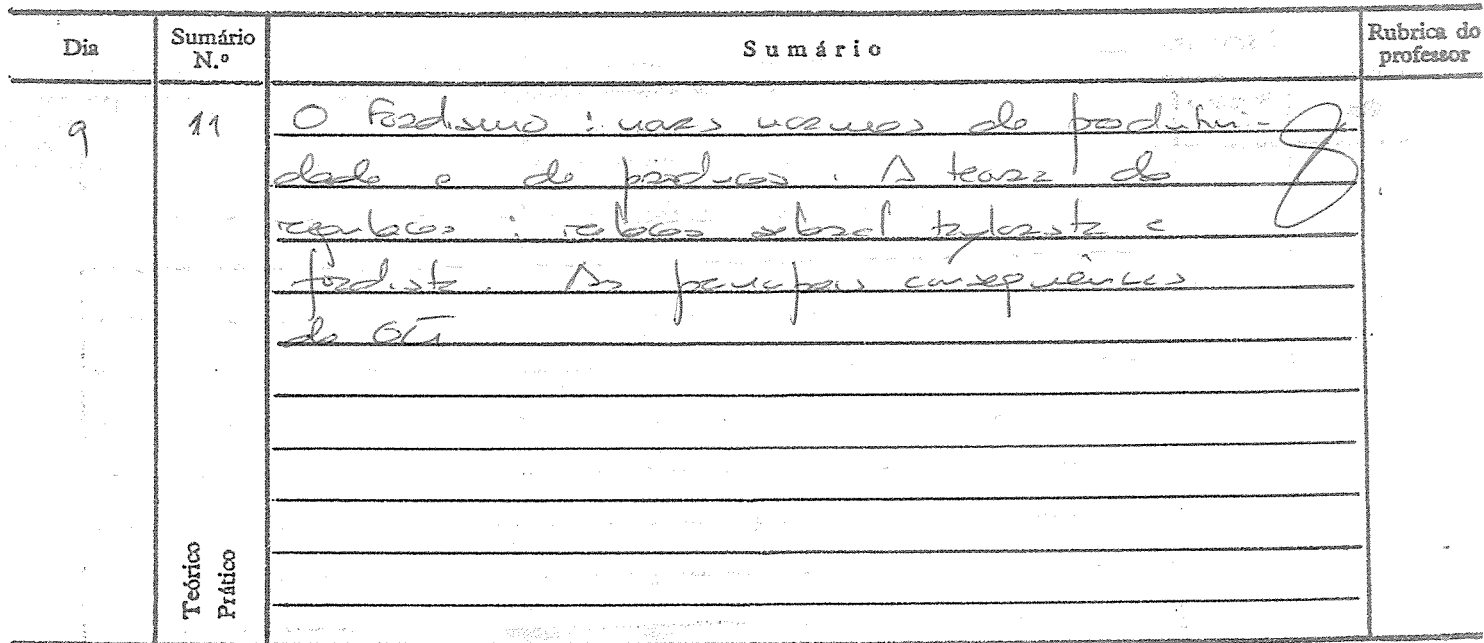 Dia
Sumário N.º
Sumário
Rubrica do professor
9
11
O Fordismo : novas normas de produtivi-
dade e de produção . A teoria da
regulação : relação salarial taylorista e
fordista . As principais consequências
da
Teórico
Prático